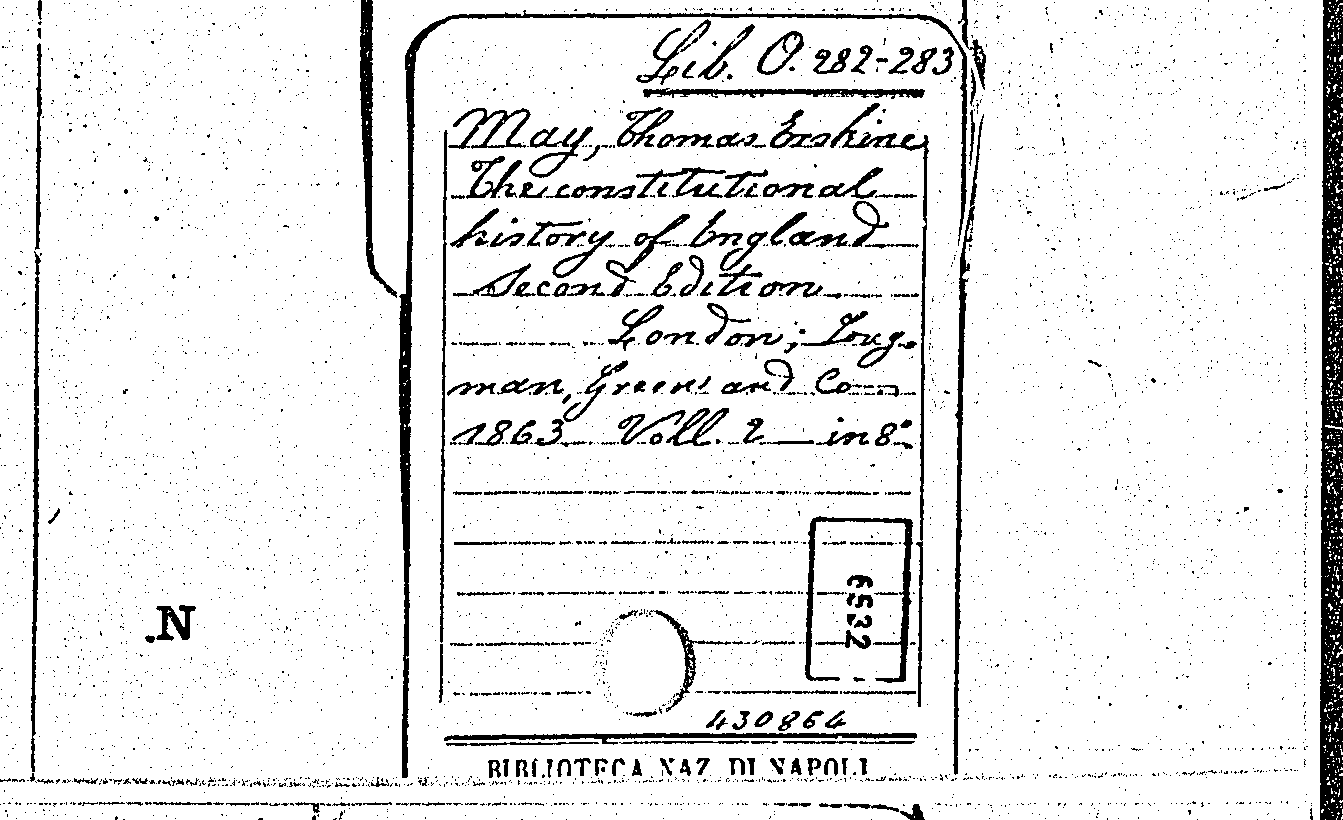 Lib. O. 282-283
May, Thomas Erskine
The constitutional
history of England
Second Edition
London; Long-
man, Green and Co
1863 Voll. 2 — in 8°
6532
.N
430864
BIBLIOTECA NAZ DI NAPOLI